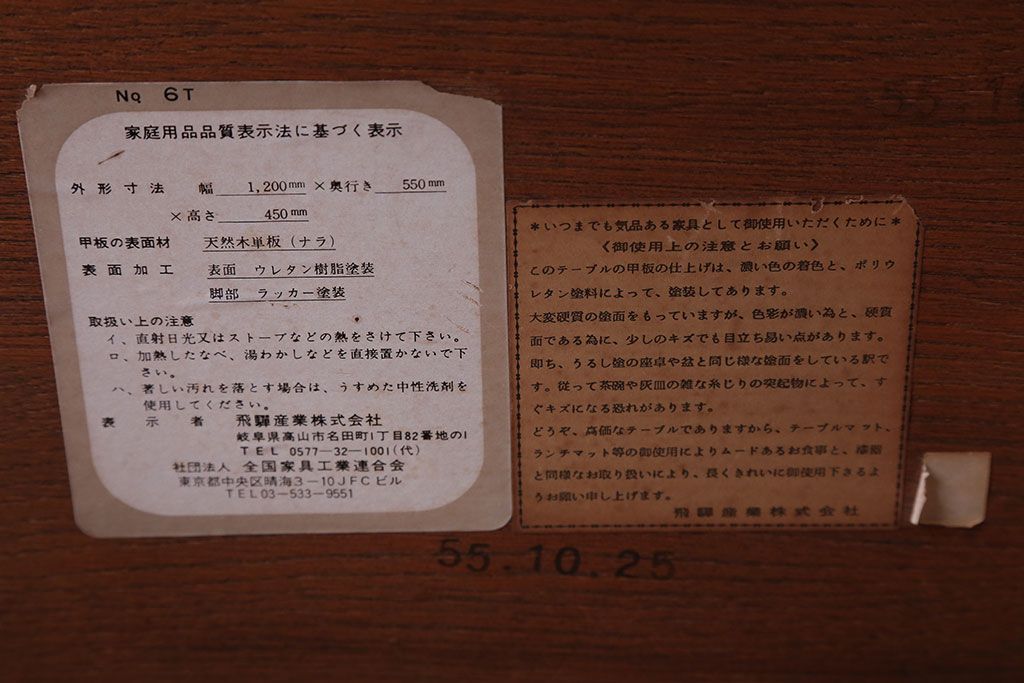 No 6T
家庭用品品質表示法に基づく表示
外形寸法 幅 1,200mm ×奥行き 550mm
×高さ 450mm
甲板の表面材 天然木単板(ナラ)
表面加工 表面 ウレタン樹脂塗装
脚部 ラッカー塗装
取扱い上の注意
イ、直射日光又はストーブなどの熱をさけて下さい。
ロ、加熱したなべ、湯わかしなどを直接置かないで下
さい。
ハ、著しい汚れを落とす場合は、うすめた中性洗剤を
使用してください。
表示者 飛驒産業株式会社
岐阜県高山市名田町1丁目82番地の1
TEL 0577-32-1001(代)
社団法人 全国家具工業連合会
東京都中央区晴海3-10JFCビル
TEL03-533-9551
*いつまでも気品ある家具として御使用いただくために*
〈御使用上の注意とお願い〉
このテーブルの甲板の仕上げは、濃い色の着色と、ポリウ
レタン塗料によって、塗装してあります。
大変硬質の塗面をもっていますが、色彩が濃い為と、硬質
面である為に、少しのキズでも目立ち易い点があります。
即ち、うるし塗の座卓や盆と同じ様な塗面をしている訳で
す。従って茶碗や灰皿の雑な糸じりの突起物によって、す
ぐキズになる恐れがあります。
どうぞ、高価なテーブルでありますから、テーブルマット、
ランチマット等の御使用によりムードあるお食事と、漆器
と同様なお取り扱いにより、長くきれいに御使用下さるよ
うお願い申し上げます。
飛驒産業株式会社
55.10.25